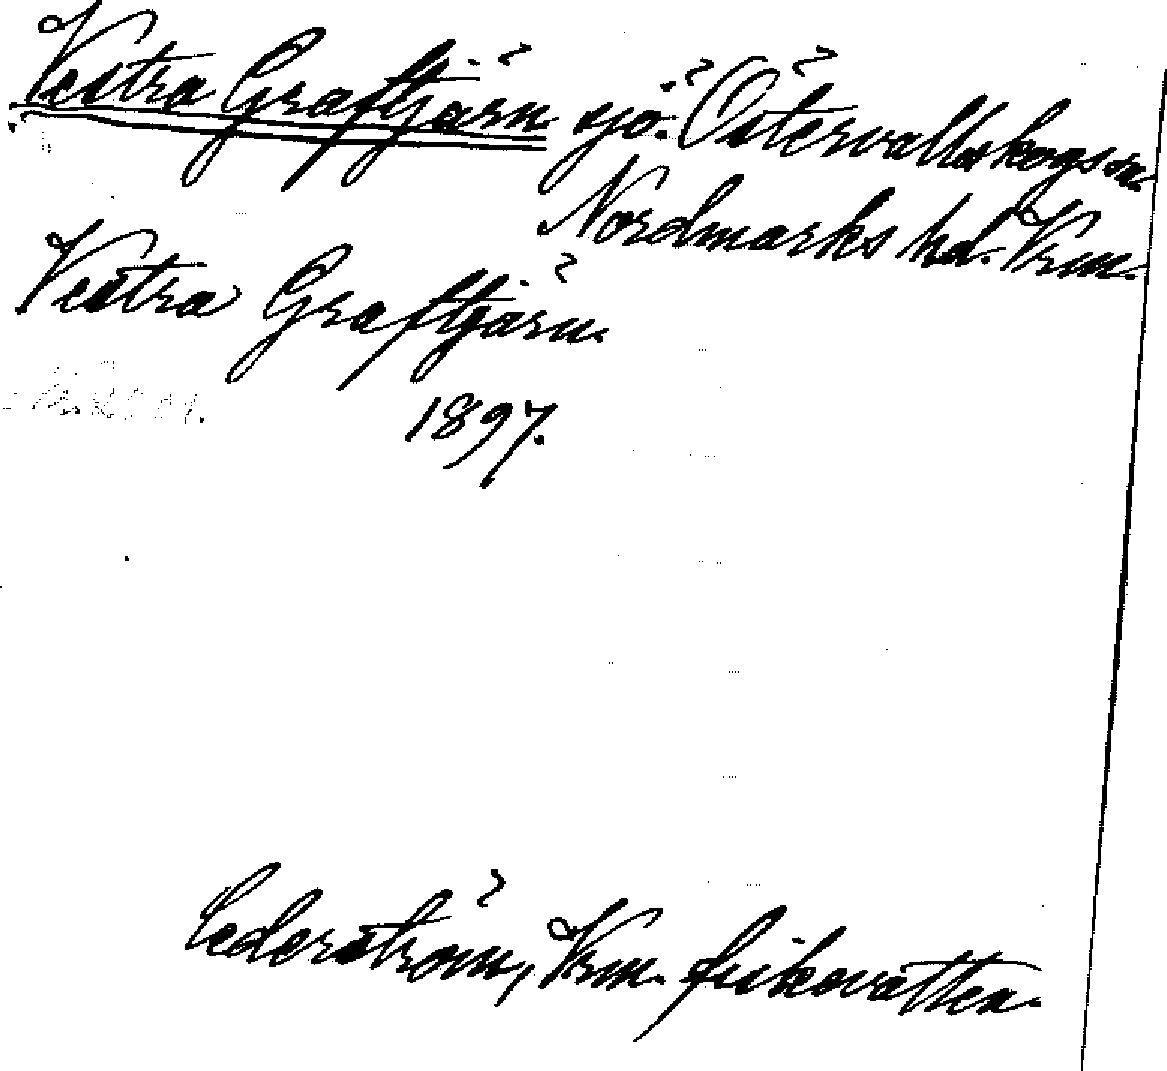 Vestra Graftjärn sjö: Östervallskogs sn.
Nordmarks hd. Vrm.
Vestra Graftjärn.
1897.
Cederström, Vrm. fiskevatten.